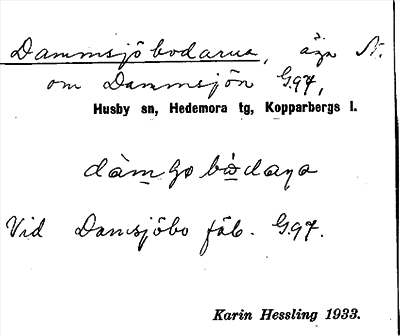 Dammsjöbodarna, äga N.
om Dammsjön G.97,
Husby sn, Hedemora tg, Kopparbergs l.
Vid Damsjöbo fäb. G.97.
Karin Hessling 1933.